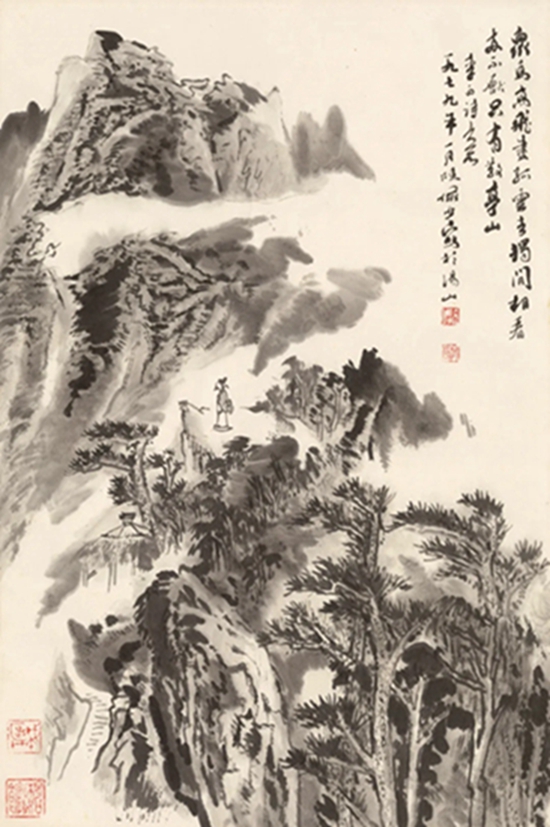 眾鳥高飛盡孤雲去獨閒相看
兩不厭只有敬亭山
李白詩大意
一九七九年一月陸儼少寫於湯山